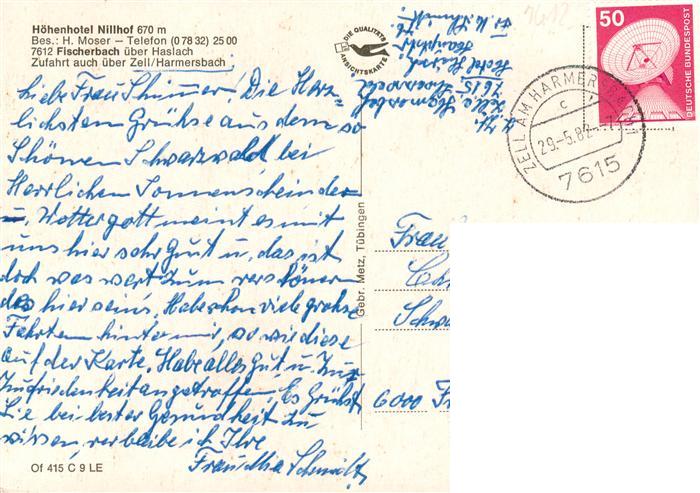 Höhenhotel Nillhof 670 m
Bes.: H. Moser – Telefon (0 78 32) 25 00
7612 Fischerbach über Haslach
Zufahrt auch über Zell/Harmersbach
Liebe Frau
Die Herz-
lichsten Grühse aus dem so
Schönen Schwarzwald, bei
Herrlichen Sonnenschein der
Wettergott meint es mit
uns hier sehr Gut u. das ist
doch was wert zum verschönen
des hier seins. Habe schon viele grohse
Fahrten hinter mir, so wie diese
auf der Karte. Habe alles gut u. zur
Zufriedenheit angetroffen. Es Grühst
Sie bei bester Gesundheit zu
wissen, verbleibe ich Ihre
Frau Mia Schmidt
Of 415 C 9 LE
Gebr. Metz, Tübingen
DIE QUALITÄTS
ANSICHTSKARTE
7615
50
DEUTSCHE BUNDESPOST
ZELL AM HARMERSBACH
c
29.-5.82.-
7615
Frau
6000 Fr